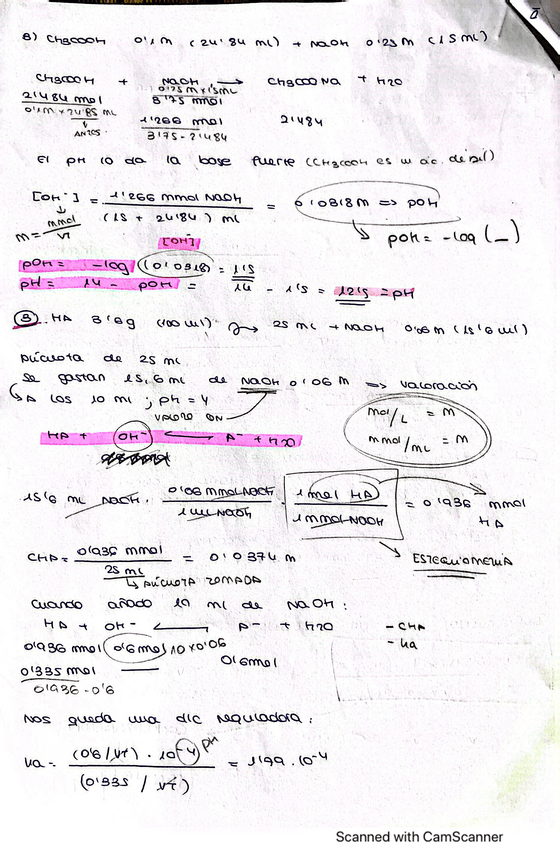 8) CH3COOH 0'1 M (24'84 ml) + NaOH 0'25 M (15 ml)
CH3COOH + NaOH → CH3COONa + H2O
2'484 mmol 0'25 M x 15 ml
0'1 M x 24'85 ml 3'75 mmol
↓ ANTES 1'266 mmol 2'484
3'75 - 2'484
El pH lo da la base fuerte (CH3COOH es un ác. débil)
[OH-] = 1'266 mmol NaOH / (15 + 24'84) ml = 0'0318 M => pOH
M = mmol / VT
pOH = -log (_)
[OH-]
pOH = -log (0'0318) = 1'5
pH = 14 - pOH = 14 - 1'5 = 12'5 = pH
HA (100 ml) → 25 ml + NaOH 0'06 M (15'6 ml)
Alícuota de 25 ml
Se gastan 15,6 ml de NaOH 0'06 M => valoración
A los 10 ml ; pH = 4
VALORO CON
mol/L = M
mmol/ml = M
HA + OH- ⟷ A- + H2O
15'6 ml NaOH · 0'06 mmol NaOH / 1 ml NaOH · 1 mmol HA / 1 mmol NaOH = 0'936 mmol HA
CHA = 0'936 mmol / 25 ml = 0'0374 M
ESTEQUIOMETRIA
↳ ALÍCUOTA TOMADA
Cuando añado 10 ml de NaOH :
HA + OH- ⟷ A- + H2O - CHA
- Ka
0'936 mmol 0'6 mol 10 x 0'06
0'6 mol
0'335 mol —
0'936 - 0'6
Nos queda una dic reguladora :
Ka = (0'6 / VT) · 10^-4 / (0'335 / VT) = 1'99 · 10^-4
pH
Scanned with CamScanner